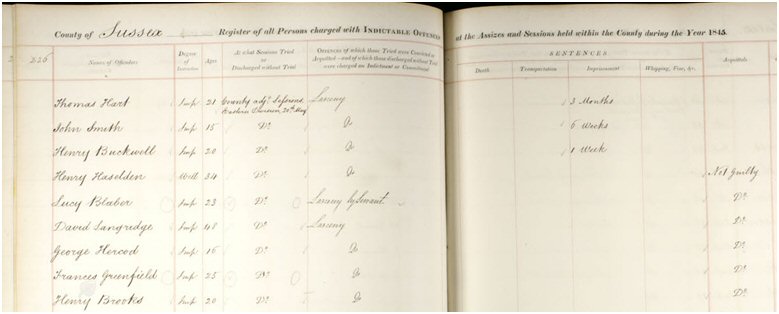 County of Sussex Register of all Persons charged with INDICTABLE OFFENCES at the Assizes and Sessions held within the County during the Year 1845.
226
Names of Offenders Degree of Instruction Ages At what Sessions Tried or Discharged without Trial OFFENCES of which those Tried were Convicted or Acquitted—and of which those discharged without Trial were charged on Indictment or Commitment SENTENCES Acquittals
Death Transportation Imprisonment Whipping, Fine, &c.
Thomas Hart Imp 21 County adjd Sessions Eastern Division, 20th May Larceny 3 Months
John Smith Imp 15 Do Do 6 Weeks
Henry Buckwell Imp 20 Do Do 1 Week
Henry Haselden Well 34 Do Do Not Guilty
Lucy Blaber Imp 23 Do Larceny by Servant Do
David Langridge Imp 48 Do Larceny Do
George Hercod Imp 16 Do Do Do
Frances Greenfield Imp 25 Do Do Do
Henry Brooks Imp 20 Do Do Do